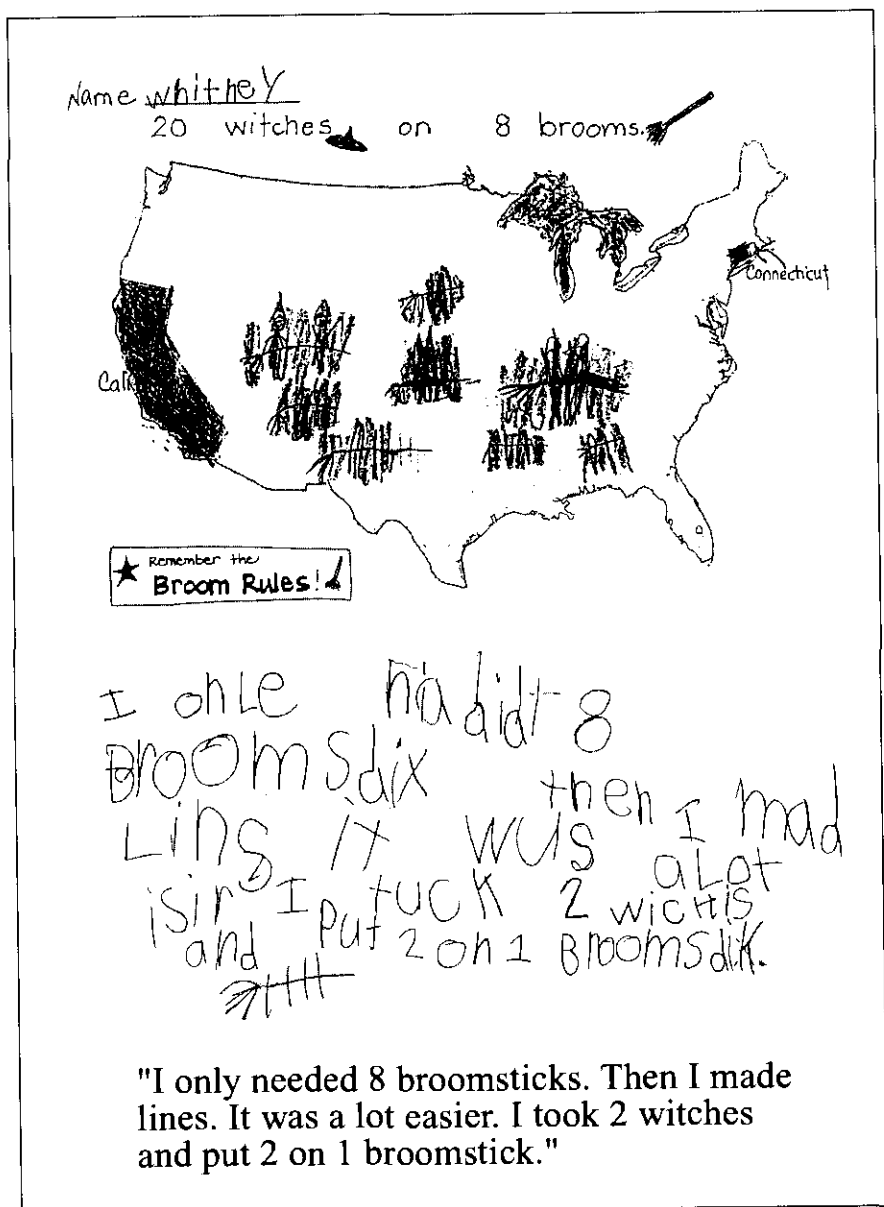 Name whitney
20 witches on 8 brooms.
Connecticut
Cali
Remember the
Broom Rules!
I onLe nadidt 8
BroomSdix then I mad
Ling it wus aLot
isir I tuck 2 wichis
and Put 2 on 1 BroomSdik.
"I only needed 8 broomsticks. Then I made
lines. It was a lot easier. I took 2 witches
and put 2 on 1 broomstick."